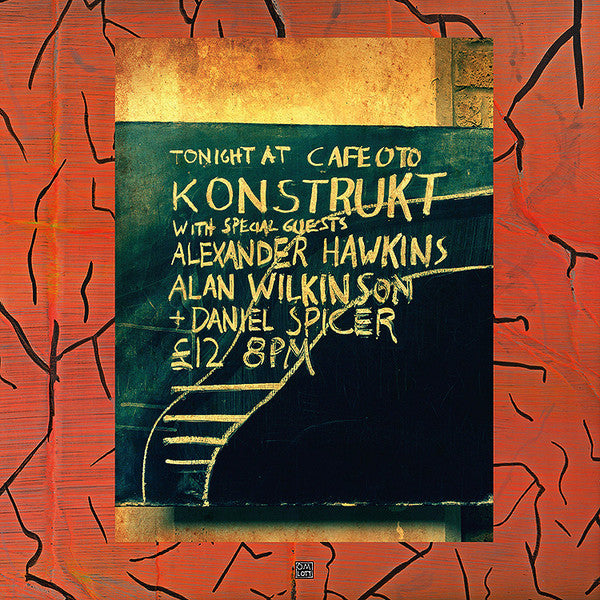 TONIGHT AT CAFE OTO
KONSTRUKT
WITH SPECIAL GUESTS
ALEXANDER HAWKINS
ALAN WILKINSON
+ DANIEL SPICER
£12 8PM
OM
LOTT